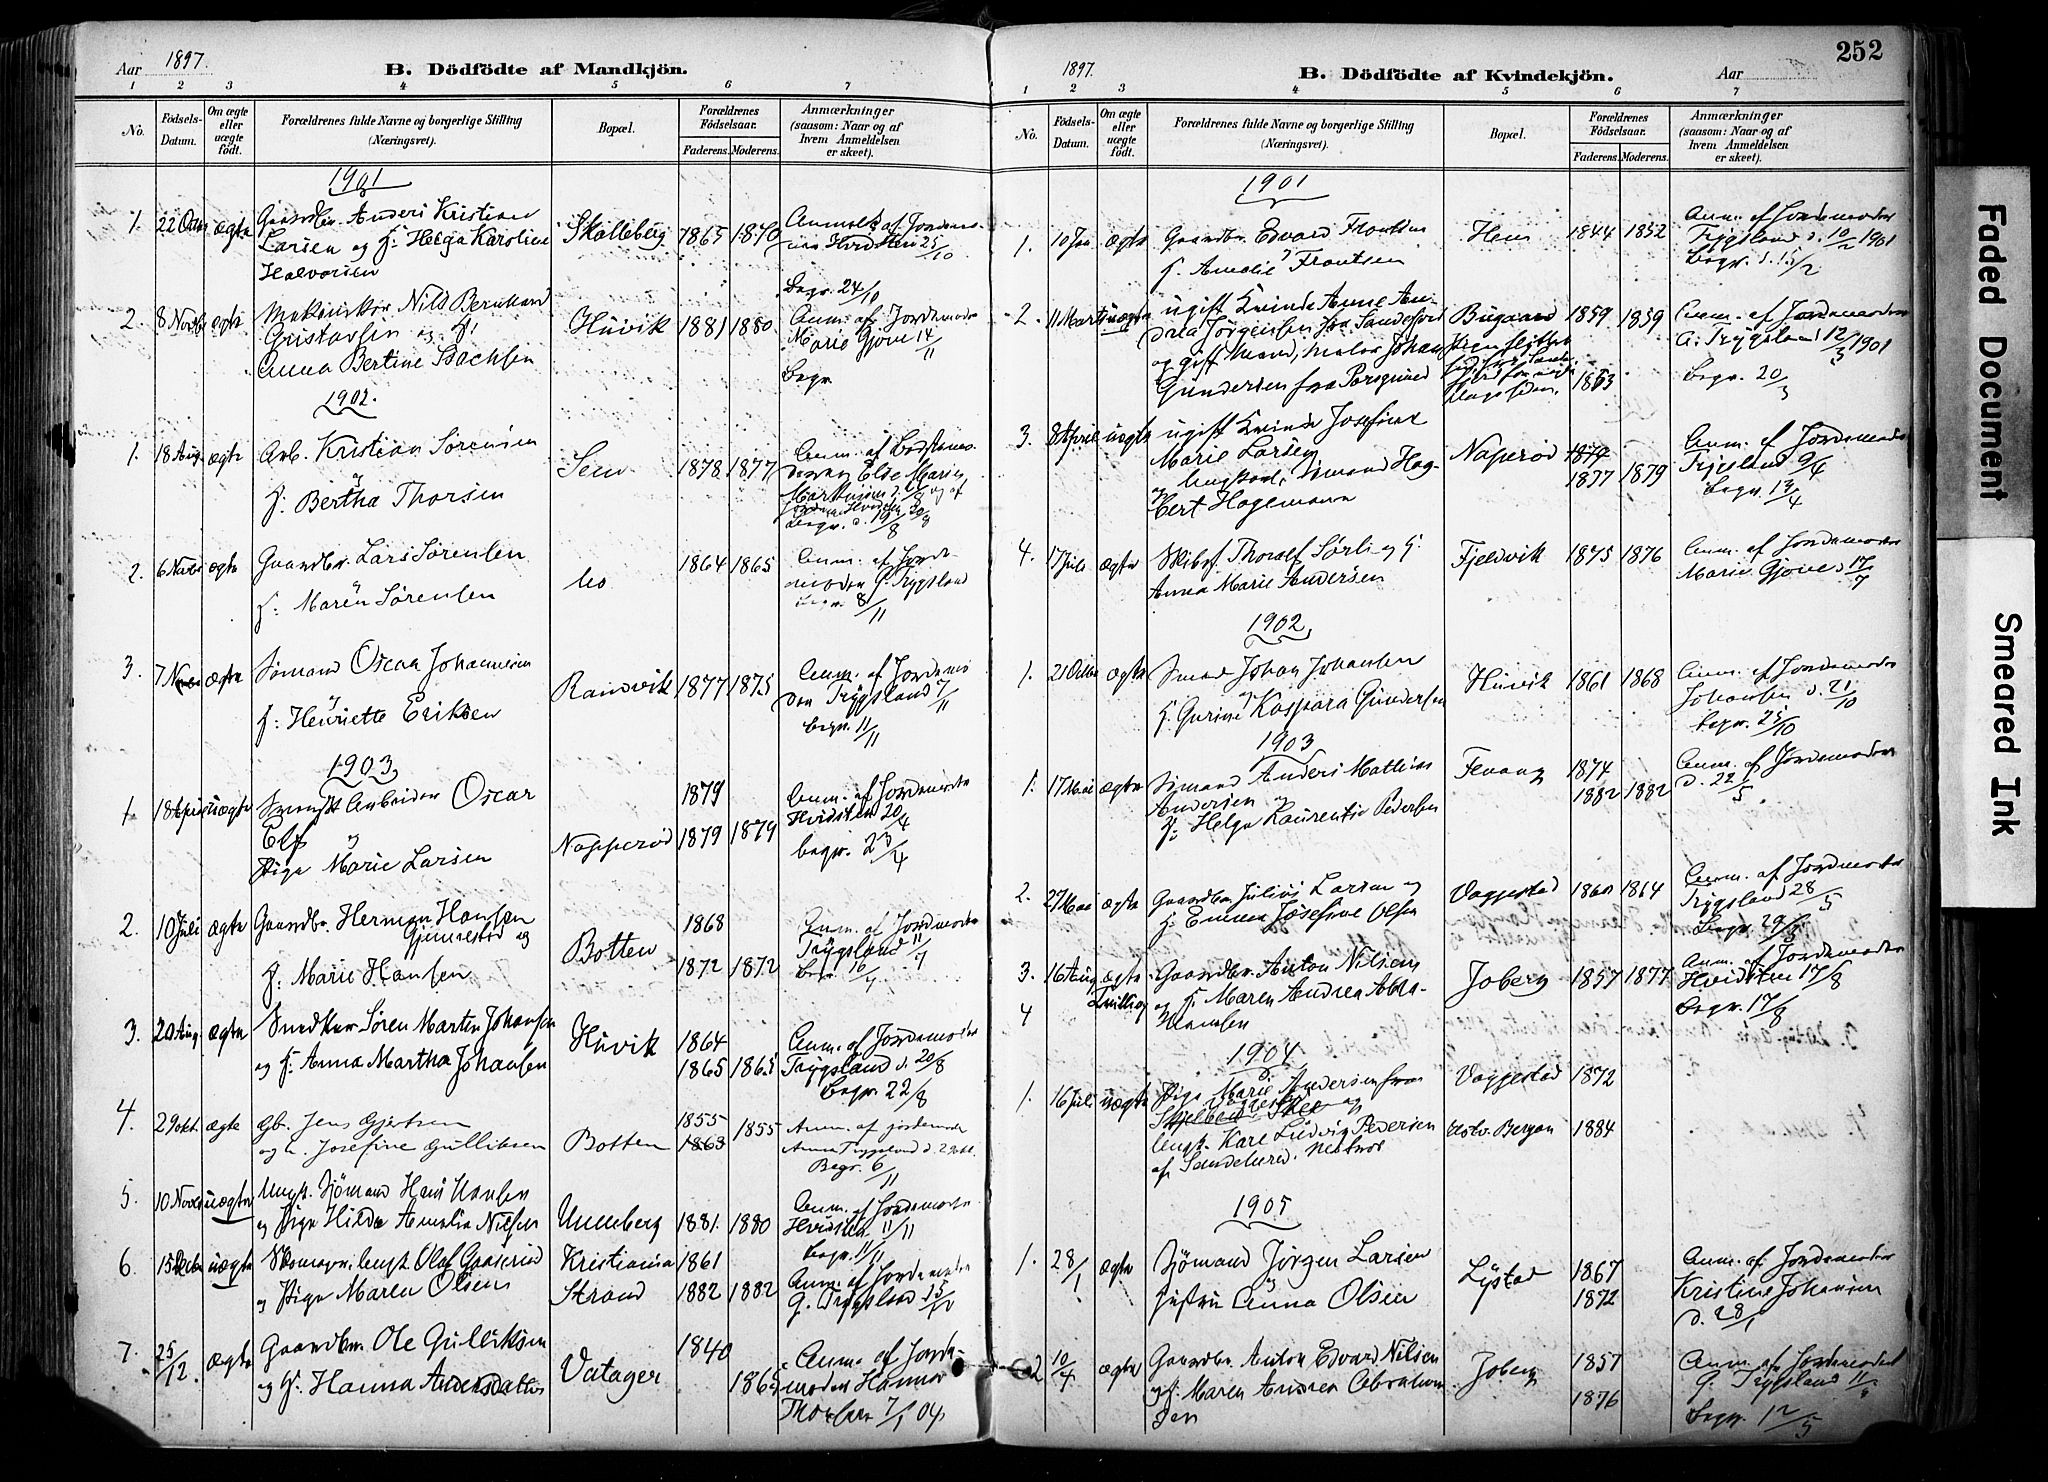 252
Aar 1897.
B. Dödfödte af Mandkjön.
1 2 3 4 5 6 7
No.
Födsels-Datum.
Om ægte eller uægte födt.
Forældrenes fulde Navne og borgerlige Stilling (Næringsvei).
Bopæl.
Forældrenes Födselsaar.
Faderens. Moderens.
Anmærkninger (saasom: Naar og af hvem Anmeldelsen er skeet).
1901
1. 22 ægte Gaardbr. Anders Kristian Skalleberg 1865 1870
Larsen og H. Helga Karoline Hvidsten 25/10
Halvorsen
Begr. 24/10
2. 8 Novbr ægte Nils Bernhard Huvik 1881 1880 Anm. af Jordemoder
Gustavsen og H. Marie Gjone 14/11
Anna Bertine Isachsen Begr
1902.
1. 18 Aug. ægte Arb. Kristian Sørensen Sem 1878 1877 Anm. af
og Else Marie
H. Bertha Thorsen
begr. d. 19/8
2. 6 ægte Gaardbr. Lars Sørensen Mo 1864 1865 Anm. af Jorde-
og moder G. Trygsland
H. Maren Sørensen begr. 8/11
3. 7 ægte Sømand Oscar Johannesen Ranvik 1877 1875 Anm. af Jordemo
og den Trygsland 7/11
H. Henriette Eriksen begr. 11/11
1903
1 18 April uægte Svensk Arbeider Oscar 1879 Anm. af Jordemoder
Elf og Napperød 1879 1879 Hvidsten 20/4
Pige Marie Larsen begr. 23/4
2. 10 Juli ægte Gaardbr. Herman Hansen 1868 Anm. af Jordemoder
Gjennestad og Botten 1872 1872 Trygsland 11/7
H. Marie Hansen begr 16/7
3. 20 Aug. ægte Snedker Søren Martin Johansen Huvik 1864 Anm. af Jordemoder
og H. Anna Martha Johansen 1865 1865 Trygsland d. 20/8
Begr. 22/8
4. 29 okt. ægte Gb. Jens Gjertsen 1855 1855 Anm. af jordemoder
og h. Josefine Gulliksen Botten 1863 Anna Trygsland d. 29 okt.
Begr. 6/11
5. 10 Novbr uægte Ungk. Sjömand Hans Hansen Unneberg 1881. 1880 Anm. af Jordemoder
og Pige Hilda Amalia Nilsen Hvidsten 11/11
begr. 11/11
6. 15 uægte Olaf Kristiania 1861
og Pige Maren Olsen Strand 1882 1882 Anm. af Jordemoder
G. Trygsland 15/10
7. 25/12. ægte Gaardbr. Ole Gulliksen Vatager 1840 Anm. af Jorde-
og H. Hanna Andersdatter 1865 moder Hanna
Thorsen 7/1 04.
1897.
B. Dödfödte af Kvindekjön.
Aar
1 2 3 4 5 6 7
No.
Födsels-Datum.
Om ægte eller uægte födt.
Forældrenes fulde Navne og borgerlige Stilling (Næringsvei).
Bopæl.
Forældrenes Födselsaar.
Faderens. Moderens.
Anmærkninger (saasom: Naar og af hvem Anmeldelsen er skeet).
1901
1. 10 Jan ægte Gaardbr. Edvard Frantsen Hem 1844 1852 Anm. af Jordemoder
og Trygsland d. 10/2 1901
H. Amalie Frantsen Begr. d. 15/2
2. 11 Marts uægte ugift Kvinde Anne An- Bugaard 1859 1859 Anm. af Jordemoder
drea Jörgensen fra Sandefjord A. Trygsland 12/3 1901
og gift Mand, Maler Johan Begr. 20/3
Gundersen fra Porsgrund 1863
3. 8 April uægte ugift Kvinde Josefine
Marie Larsen Naperød 1874 Anm. af Jordemoder
og Ungkarl, Sömand Hag- 1877 1879 Trygsland 9/4
bert Hagemann begr. 13/4
4. 17 Juli ægte Skibsf. Thoralf Sørli og H. Fjeldvik 1875 1876 Anm. af Jordemoder
Anna Marie Andersen Marie Gjone d. 17/7
1902
1. 21 ægte Smed Johan Johansen Huvik 1861 1868 Anm. af Jordemoder
og Johansen d. 21/10
H. Gurine Kaspara Gundersen begr. 25/10
1903
1. 17 Mai ægte Sömand Anders Mathias Fevang 1874 Anm. af Jordemoder
Andersen og 1882 1882 d. 22/5
H. Helga Laurentse Pedersen
2. 27 Mai ægte Gaardbr. Julius Larsen og Vaggestad 1860 1864 Anm. af Jordemoder
H. Emma Josefine Olsen Trygsland 28/5
Begr. 29/5
3. 16 Aug ægte Gaardbr. Anton Nilsen Joberg 1857 1877 Anm. af Jordemoder
4 Tvilling og H. Maren Andrea Abra- Hvidsten 17/8
hamsen begr. 17/8
1904
1. 16 Juli uægte Pige Marie Andersen fra Vaggestad 1872
og
Ungk. Karl Ludvig Pedersen Bergan 1884
af Sandeherred.
1905
1. 28/1 ægte Sjömand Jørgen Larsen Lystad 1867 Anm. af Jordemoder
og 1872 Kristine Johansen
Hustru Anna Olsen d. 28/1
2 10/4 ægte Gaardbr. Anton Edvard Nilsen Joberg 1857 Anm. af Jordemoder
og H. Maren Andrea Abraham 1876 G. Trygsland
sen Begr. 12/5
Faded Document
Smeared Ink